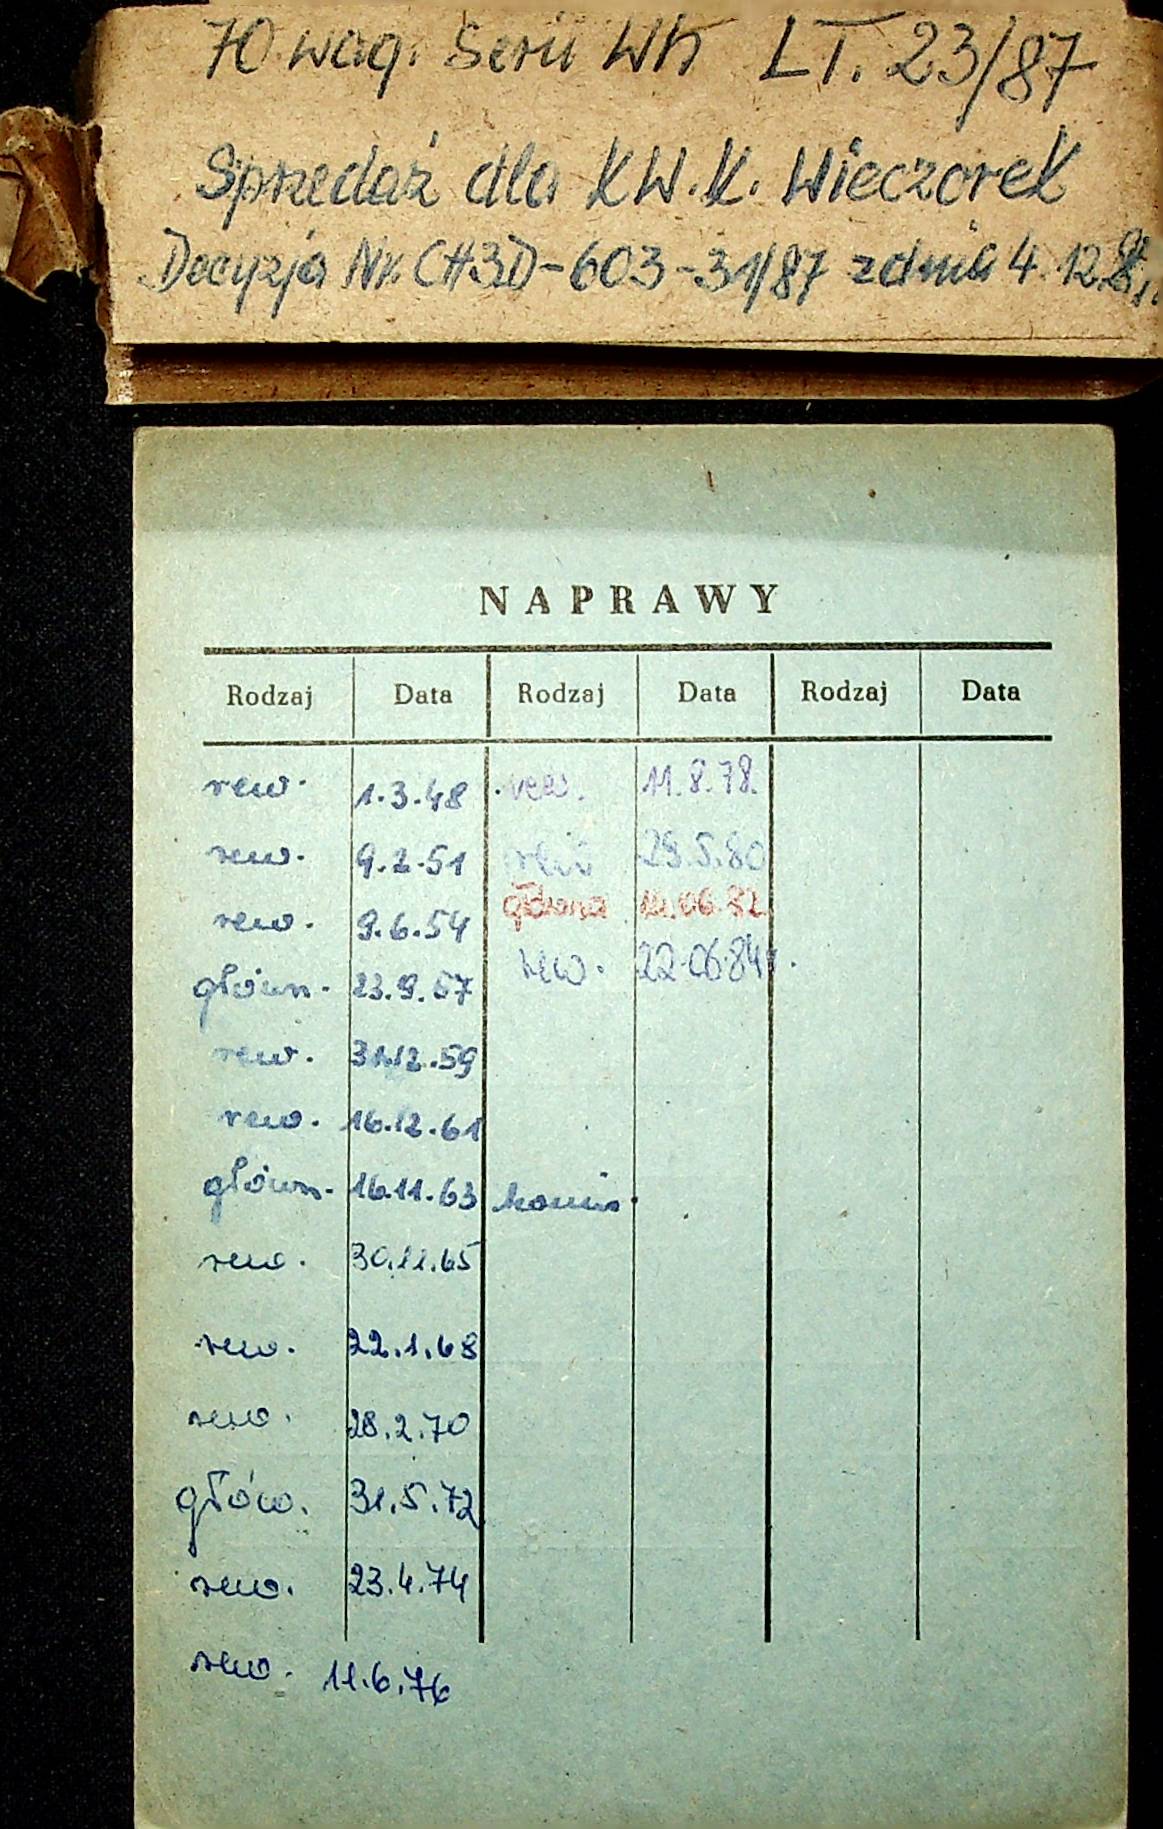 70 wag. Serii Wh LT. 23/87
Sprzedaż dla KW.K. Wieczorek
Decyzja Nr. CH3D-603-31/87 z dnia 4.12.
NAPRAWY
Rodzaj Data Rodzaj Data Rodzaj Data
rew. 1.3.48 rew. 11.8.78.
rew. 9.2.51 rew 28.5.80
główna 14.06.82
rew. 9.6.54
rew. 22.06.84r.
główn. 23.9.57
rew. 31.12.59
rew. 16.12.61
główn. 16.11.63 komis.
rew. 30.11.65
rew. 22.1.68
rew. 28.2.70
głów. 31.5.72
rew. 23.4.74
rew. 11.6.76